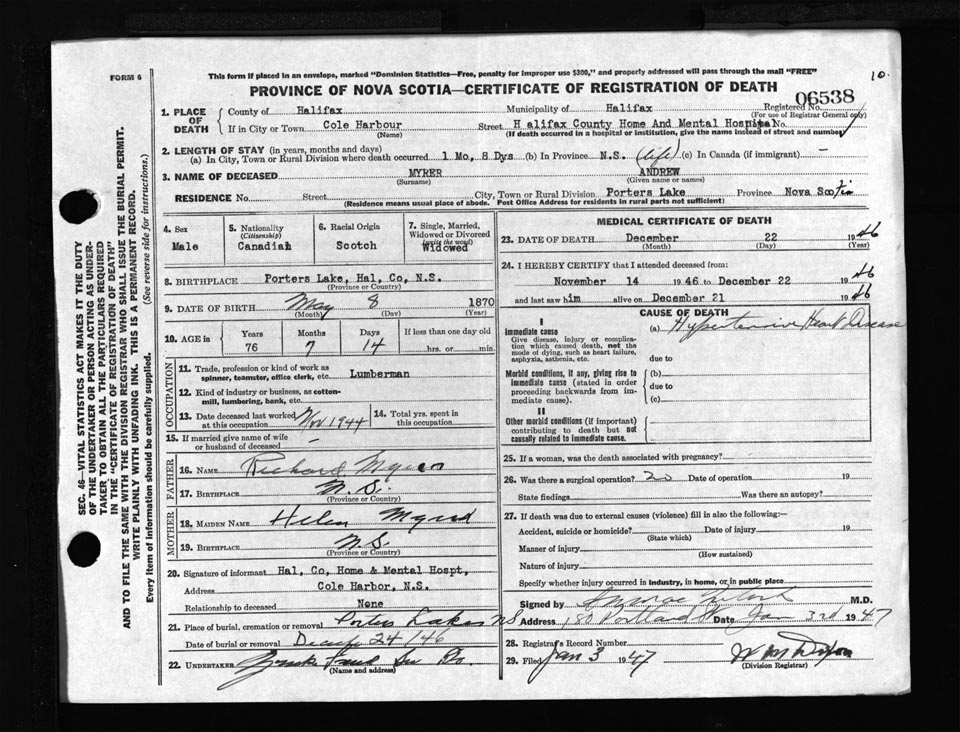 FORM 6
This form if placed in an envelope, marked "Dominion Statistics—Free, penalty for improper use $300," and properly addressed will pass through the mail "FREE"
10.
PROVINCE OF NOVA SCOTIA—CERTIFICATE OF REGISTRATION OF DEATH
06538
1. PLACE OF DEATH
County of Halifax Municipality of Halifax Registered No.
(For use of Registrar General only)
If in City or Town Cole Harbour Street Halifax County Home And Mental Hospital No.
(Name) (If death occurred in a hospital or institution, give the name instead of street and number)
2. LENGTH OF STAY (in years, months and days)
(a) In City, Town or Rural Division where death occurred 1 Mo, 8 Dys (b) In Province N.S. (life) (c) In Canada (if immigrant) —
3. NAME OF DECEASED MYRER ANDREW
(Surname) (Given name or names)
RESIDENCE No. Street City, Town or Rural Division Porters Lake Province Nova Scotia
(Residence means usual place of abode. Post Office Address for residents in rural parts not sufficient)
4. Sex
Male
5. Nationality
(Citizenship)
Canadian
6. Racial Origin
Scotch
7. Single, Married, Widowed or Divorced
(write the word)
Widowed
8. BIRTHPLACE Porters Lake, Hal, Co, N.S.
(Province or Country)
9. DATE OF BIRTH May 8 1870
(Month) (Day) (Year)
10. AGE in
Years Months Days If less than one day old
76 7 14 hrs. or min.
OCCUPATION
11. Trade, profession or kind of work as spinner, teamster, office clerk, etc. Lumberman
12. Kind of industry or business, as cotton-mill, lumbering, bank, etc.
13. Date deceased last worked at this occupation Nov 1944
14. Total yrs. spent in this occupation
15. If married give name of wife or husband of deceased —
FATHER
16. NAME Richard
17. BIRTHPLACE N.S.
(Province or Country)
MOTHER
18. MAIDEN NAME Helen
19. BIRTHPLACE N.S.
(Province or Country)
20. Signature of informant Hal, Co, Home & Mental Hospt,
Address Cole Harbor, N.S.
Relationship to deceased None
21. Place of burial, cremation or removal Porters Lake NS
Date of burial or removal 24/46
22. UNDERTAKER
(Name and address)
MEDICAL CERTIFICATE OF DEATH
23. DATE OF DEATH December 22 1946
(Month) (Day) (Year)
24. I HEREBY CERTIFY that I attended deceased from:
November 14 1946 to December 22 1946
and last saw him alive on December 21 1946
CAUSE OF DEATH
I
Immediate cause
Give disease, injury or complication which caused death, not the mode of dying, such as heart failure, asphyxia, asthenia, etc.
(a) Hypertensive Heart Disease
due to
Morbid conditions, if any, giving rise to immediate cause (stated in order proceeding backwards from immediate cause).
(b)
due to
(c)
II
Other morbid conditions (if important) contributing to death but not causally related to immediate cause.
25. If a woman, was the death associated with pregnancy?
26. Was there a surgical operation? no Date of operation 19
State findings Was there an autopsy?
27. If death was due to external causes (violence) fill in also the following:—
Accident, suicide or homicide? Date of injury 19
(State which)
Manner of injury
(How sustained)
Nature of injury
Specify whether injury occurred in industry, in home, or in public place
Signed by M.D.
Address 150 Portland St Date Jan 3rd 1947
28. Registrar's Record Number
29. Filed Jan 3 1947 W M Dixon
(Division Registrar)
SEC. 46—VITAL STATISTICS ACT MAKES IT THE DUTY
OF THE UNDERTAKER OR PERSON ACTING AS UNDER-
TAKER TO OBTAIN ALL THE PARTICULARS REQUIRED
IN THE "CERTIFICATE OF REGISTRATION OF DEATH"
AND TO FILE THE SAME WITH THE DIVISION REGISTRAR WHO SHALL ISSUE THE BURIAL PERMIT.
WRITE PLAINLY WITH UNFADING INK. THIS IS A PERMANENT RECORD.
Every item of information should be carefully supplied. (See reverse side for instructions.)